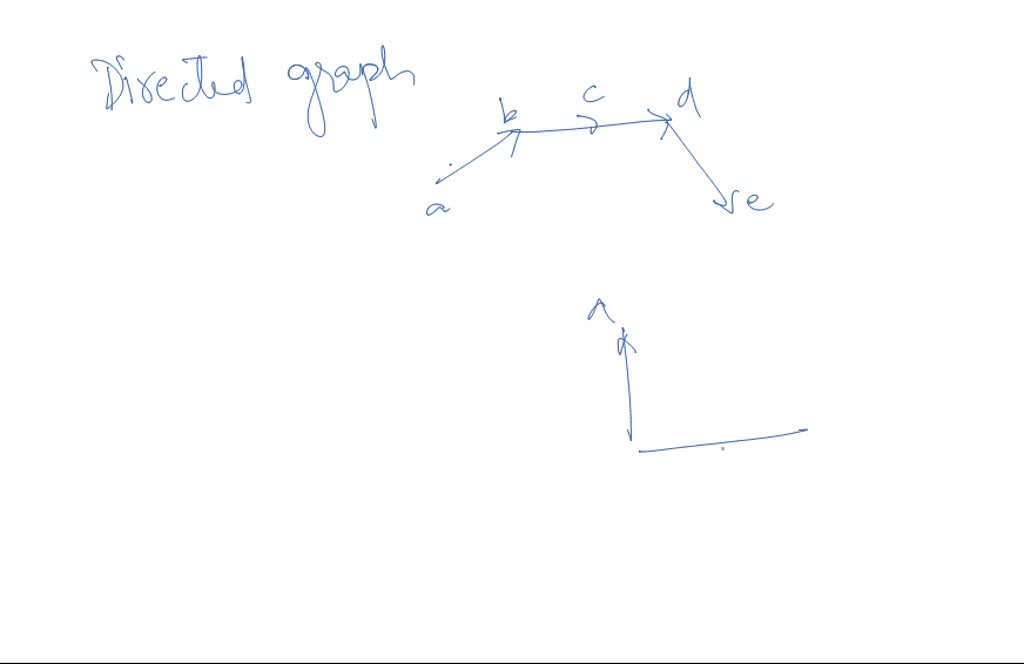 Directed graph
b c d
a e
A